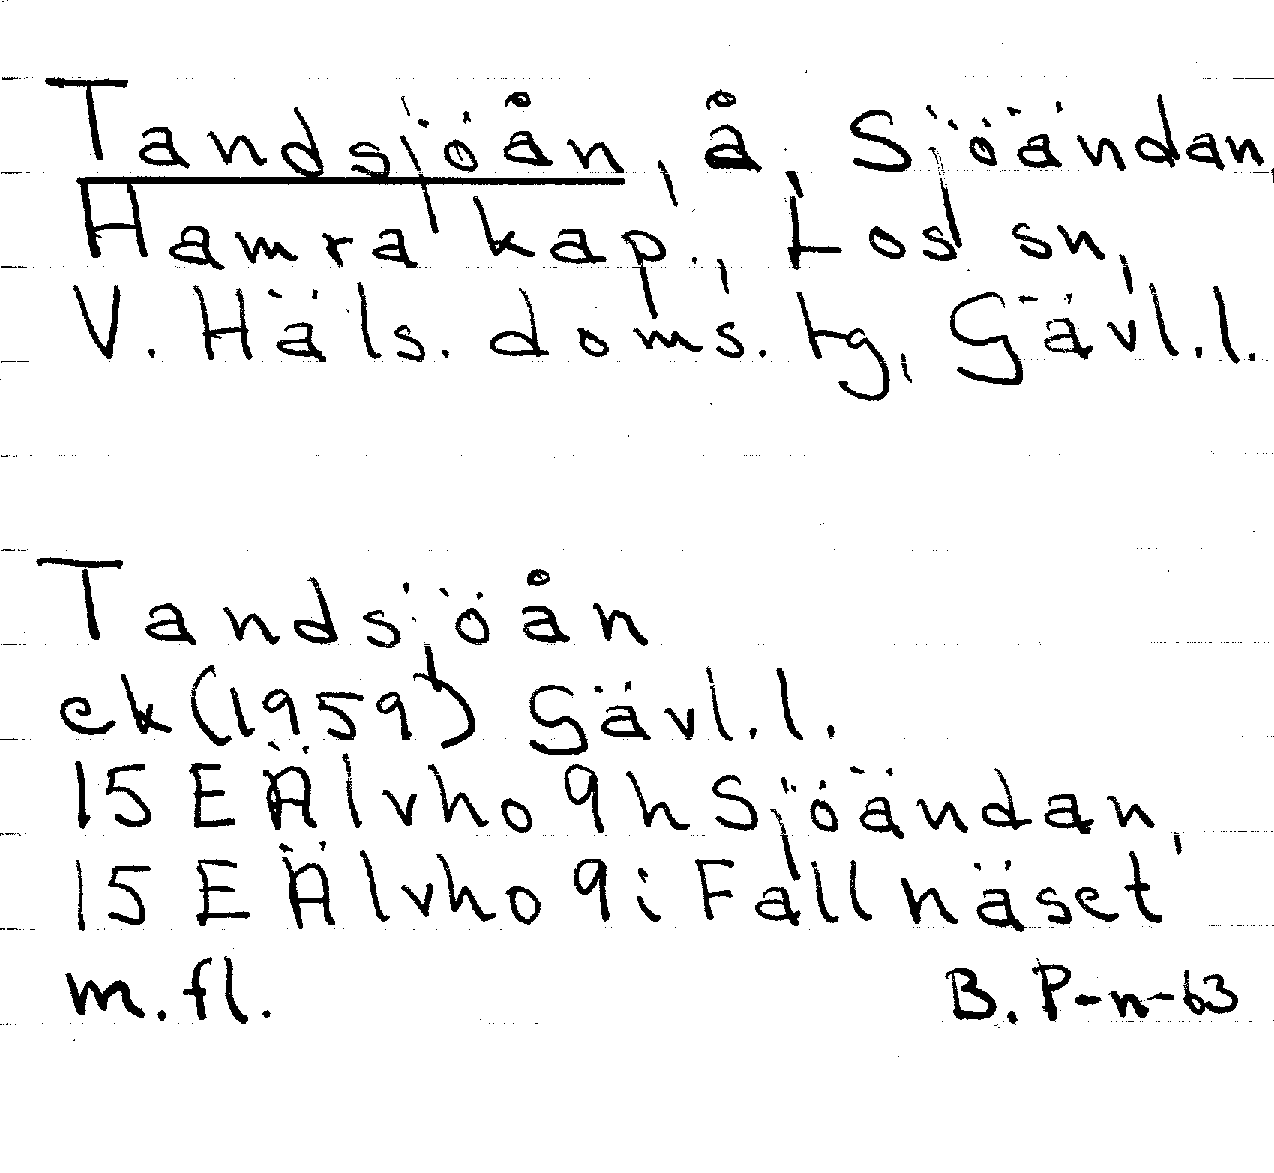 Tandsjöån, å, Sjöändan,
Hamra kap., Los sn,
V. Häls. doms. tg, Gävl.l.
Tandsjöån
ek (1959) Gävl.l.
15 E Älvho 9 h Sjöändan,
15 E Älvho 9 i Fallnäset
m.fl. B.P-n-63